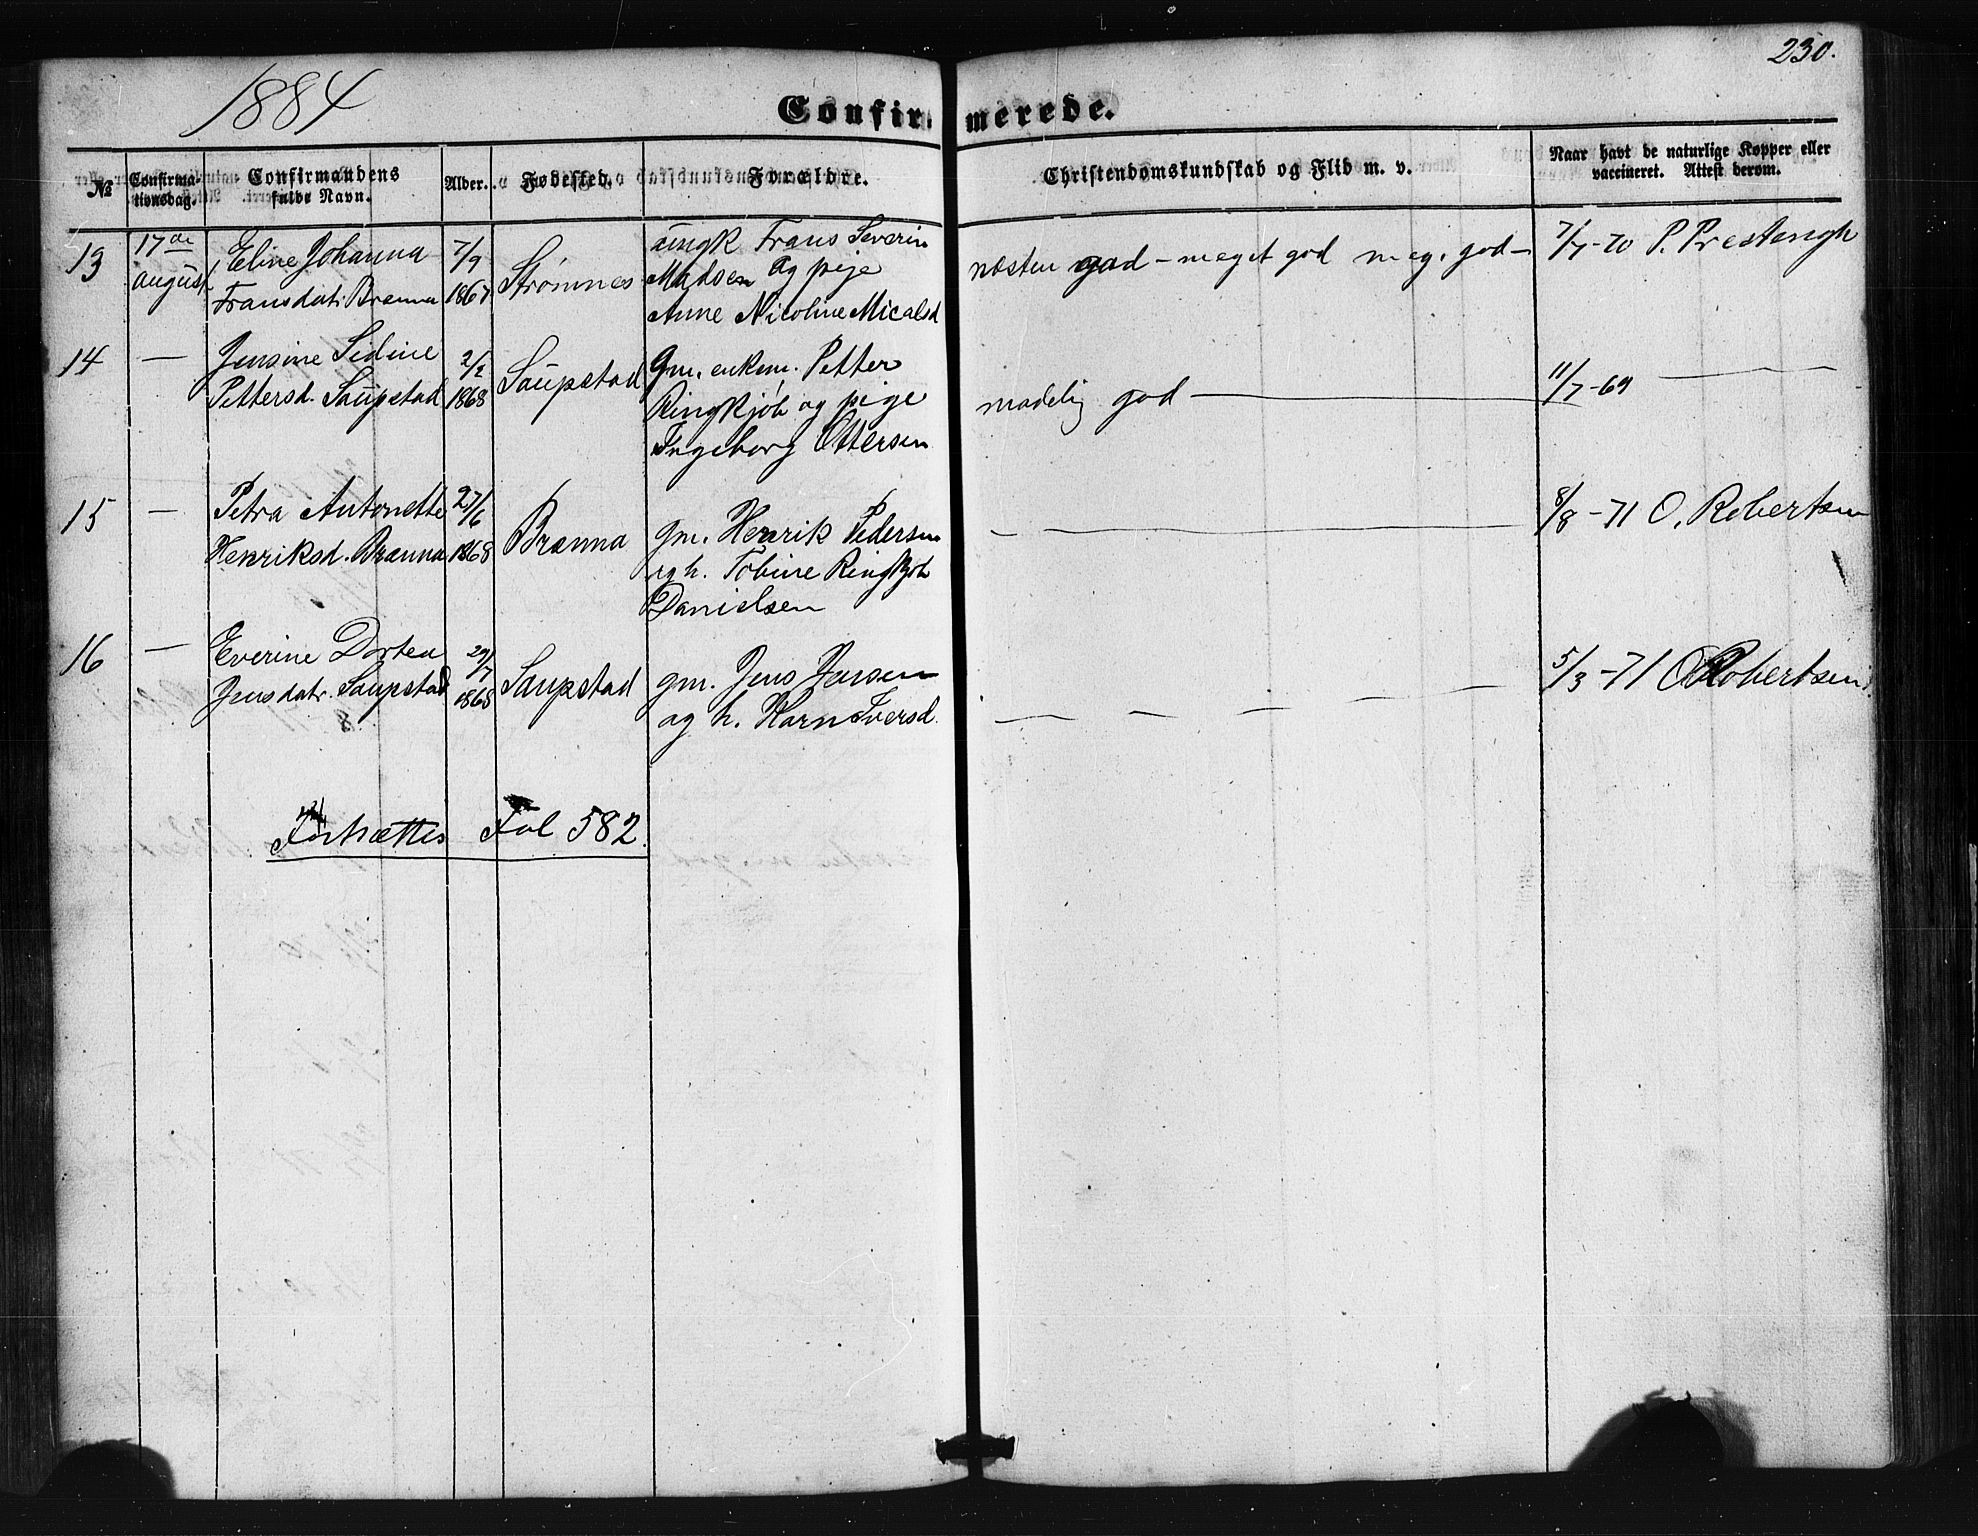 1884
230.
Confirmerede.
№
Confirma-
tionsdag.
Confirmandens
fulde Navn.
Alder.
Fødested.
Forældre.
Christendomskundskab og Flid m. v.
Naar havt de naturlige Kopper eller
vaccineret. Attest derom.
13
17de
august
Eline Johanna
Fransdatr. Brenna
7/9
1867
Strømnes
ungk Frans Severin
Madsen og pige
Anne Nicoline Micalsd
næsten god – meget god meg. god –
7/7 -70 P. Prestengh
14
—
Jensine Sidine
Pettersd. Saupstad
2/2
1868
Saupstad
Gm. enkem. Petter
Ringkjøb og pige
Ingeborg Ottersen
madelig god —
11/7 -69 —
15
—
Petra Antonette
Henriksd. Brænna
27/6
1868
Brænna
gm. Henrik Pedersen
og h. Tobine Ringkjøb
Danielsen
—
8/8 -71 O. Robertsen
16
—
Everine Dortea
Jensdatr. Saupstad
29/7
1868
Saupstad
gm. Jens Jensen
og h. Karn Iversd.
— — — — —
5/3 -71 O Robertsen
Fortsættes Fol 582.